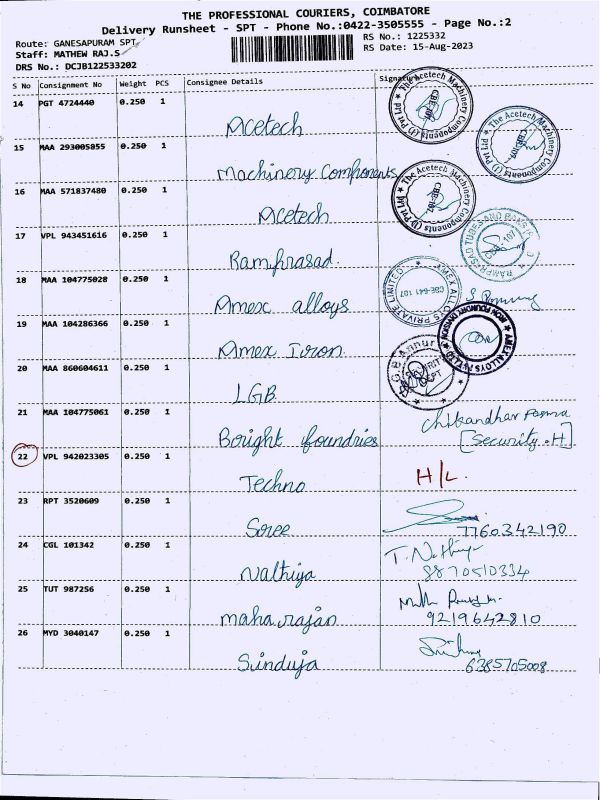 THE PROFESSIONAL COURIERS, COIMBATORE
Delivery Runsheet - SPT - Phone No.:0422-3505555 - Page No.:2
Route: GANESAPURAM SPT
RS No.: 1225332
Staff: MATHEW RAJ.S
RS Date: 15-Aug-2023
DRS No.: DCJB122533202
S No Consignment No Weight PCS Consignee Details Signature
14 PGT 4724440 0.250 1
Acetech
The Acetech Machinery Components (I) Pvt Ltd
CBE-107.
15 MAA 293005855 0.250 1
Machinery Components
The Acetech Machinery Components (I) Pvt Ltd
CBE-107.
16 MAA 571837480 0.250 1
Acetech
The Acetech Machinery Components (I) Pvt Ltd
CBE-107.
17 VPL 943451616 0.250 1
Ramprasad.
RAMPRASAD TUBES AND
18 MAA 104775028 0.250 1
Amex alloys
AMEX ALLOYS PRIVATE LIMITED
CBE-641 107
19 MAA 104286366 0.250 1
Amex Iron.
AMEX ALLOYS PVT LTD IRON FOUNDRY DIVISION
20 MAA 860604611 0.250 1
LGB.
L.G.B Annur
21 MAA 104775061 0.250 1
Boright foundries
[Security.H]
22 VPL 942023305 0.250 1
Techno
H/L
23 RPT 3520609 0.250 1
Soree
7760342190
24 CGL 101342 0.250 1
Nathiya
8870510334
25 TUT 987256 0.250 1
maharajan
9219642810
26 MYD 3040147 0.250 1
Sinduja
6385705008